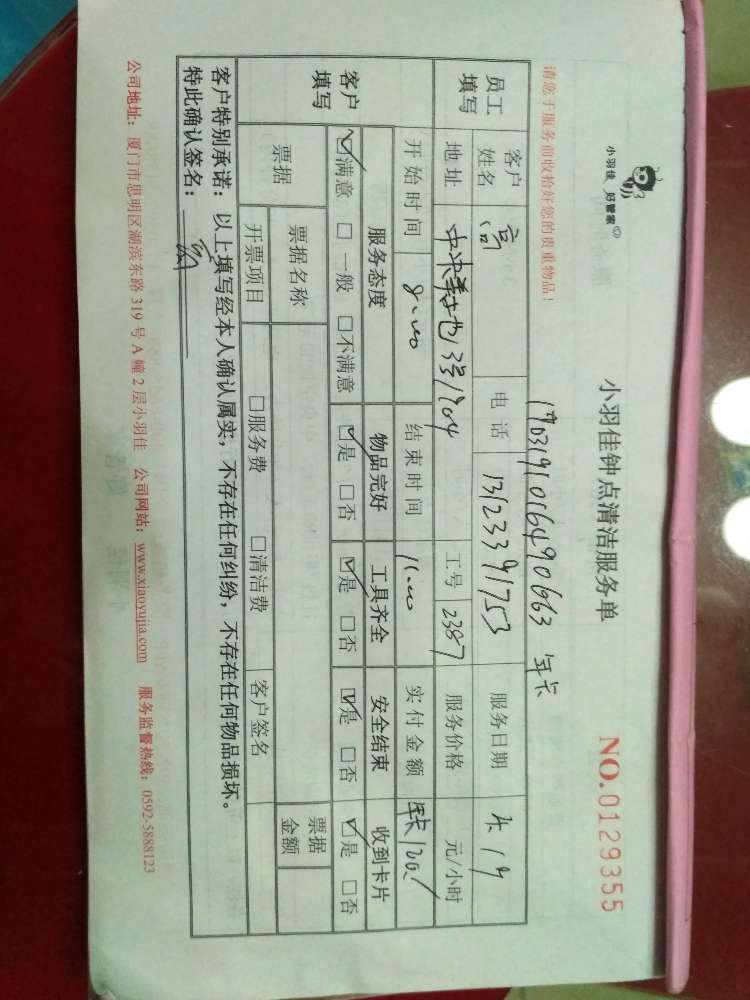 小羽佳 好管家
小羽佳钟点清洁服务单
NO.0129355
请您于服务前收拾好您的贵重物品!
年卡
员工填写 客户姓名 高 电话 13123391753 服务日期
地址 13号1904 工号 2387 服务价格 元/小时
开始时间 8:00 结束时间 11:00 实付金额
客户填写 服务态度 物品完好 工具齐全 安全结束 收到卡片
☑满意 □一般 □不满意 ☑是 □否 ☑是 □否 ☑是 □否 ☑是 □否
票据 票据名称 票据金额
开票项目 □服务费 □清洁费 客户签名
客户特别承诺:以上填写经本人确认属实,不存在任何纠纷,不存在任何物品损坏。
特此确认签名:
公司地址:厦门市思明区湖滨东路319号A幢2层小羽佳 公司网站:www.xiaoyujia.com 服务监督热线:0592-5888123